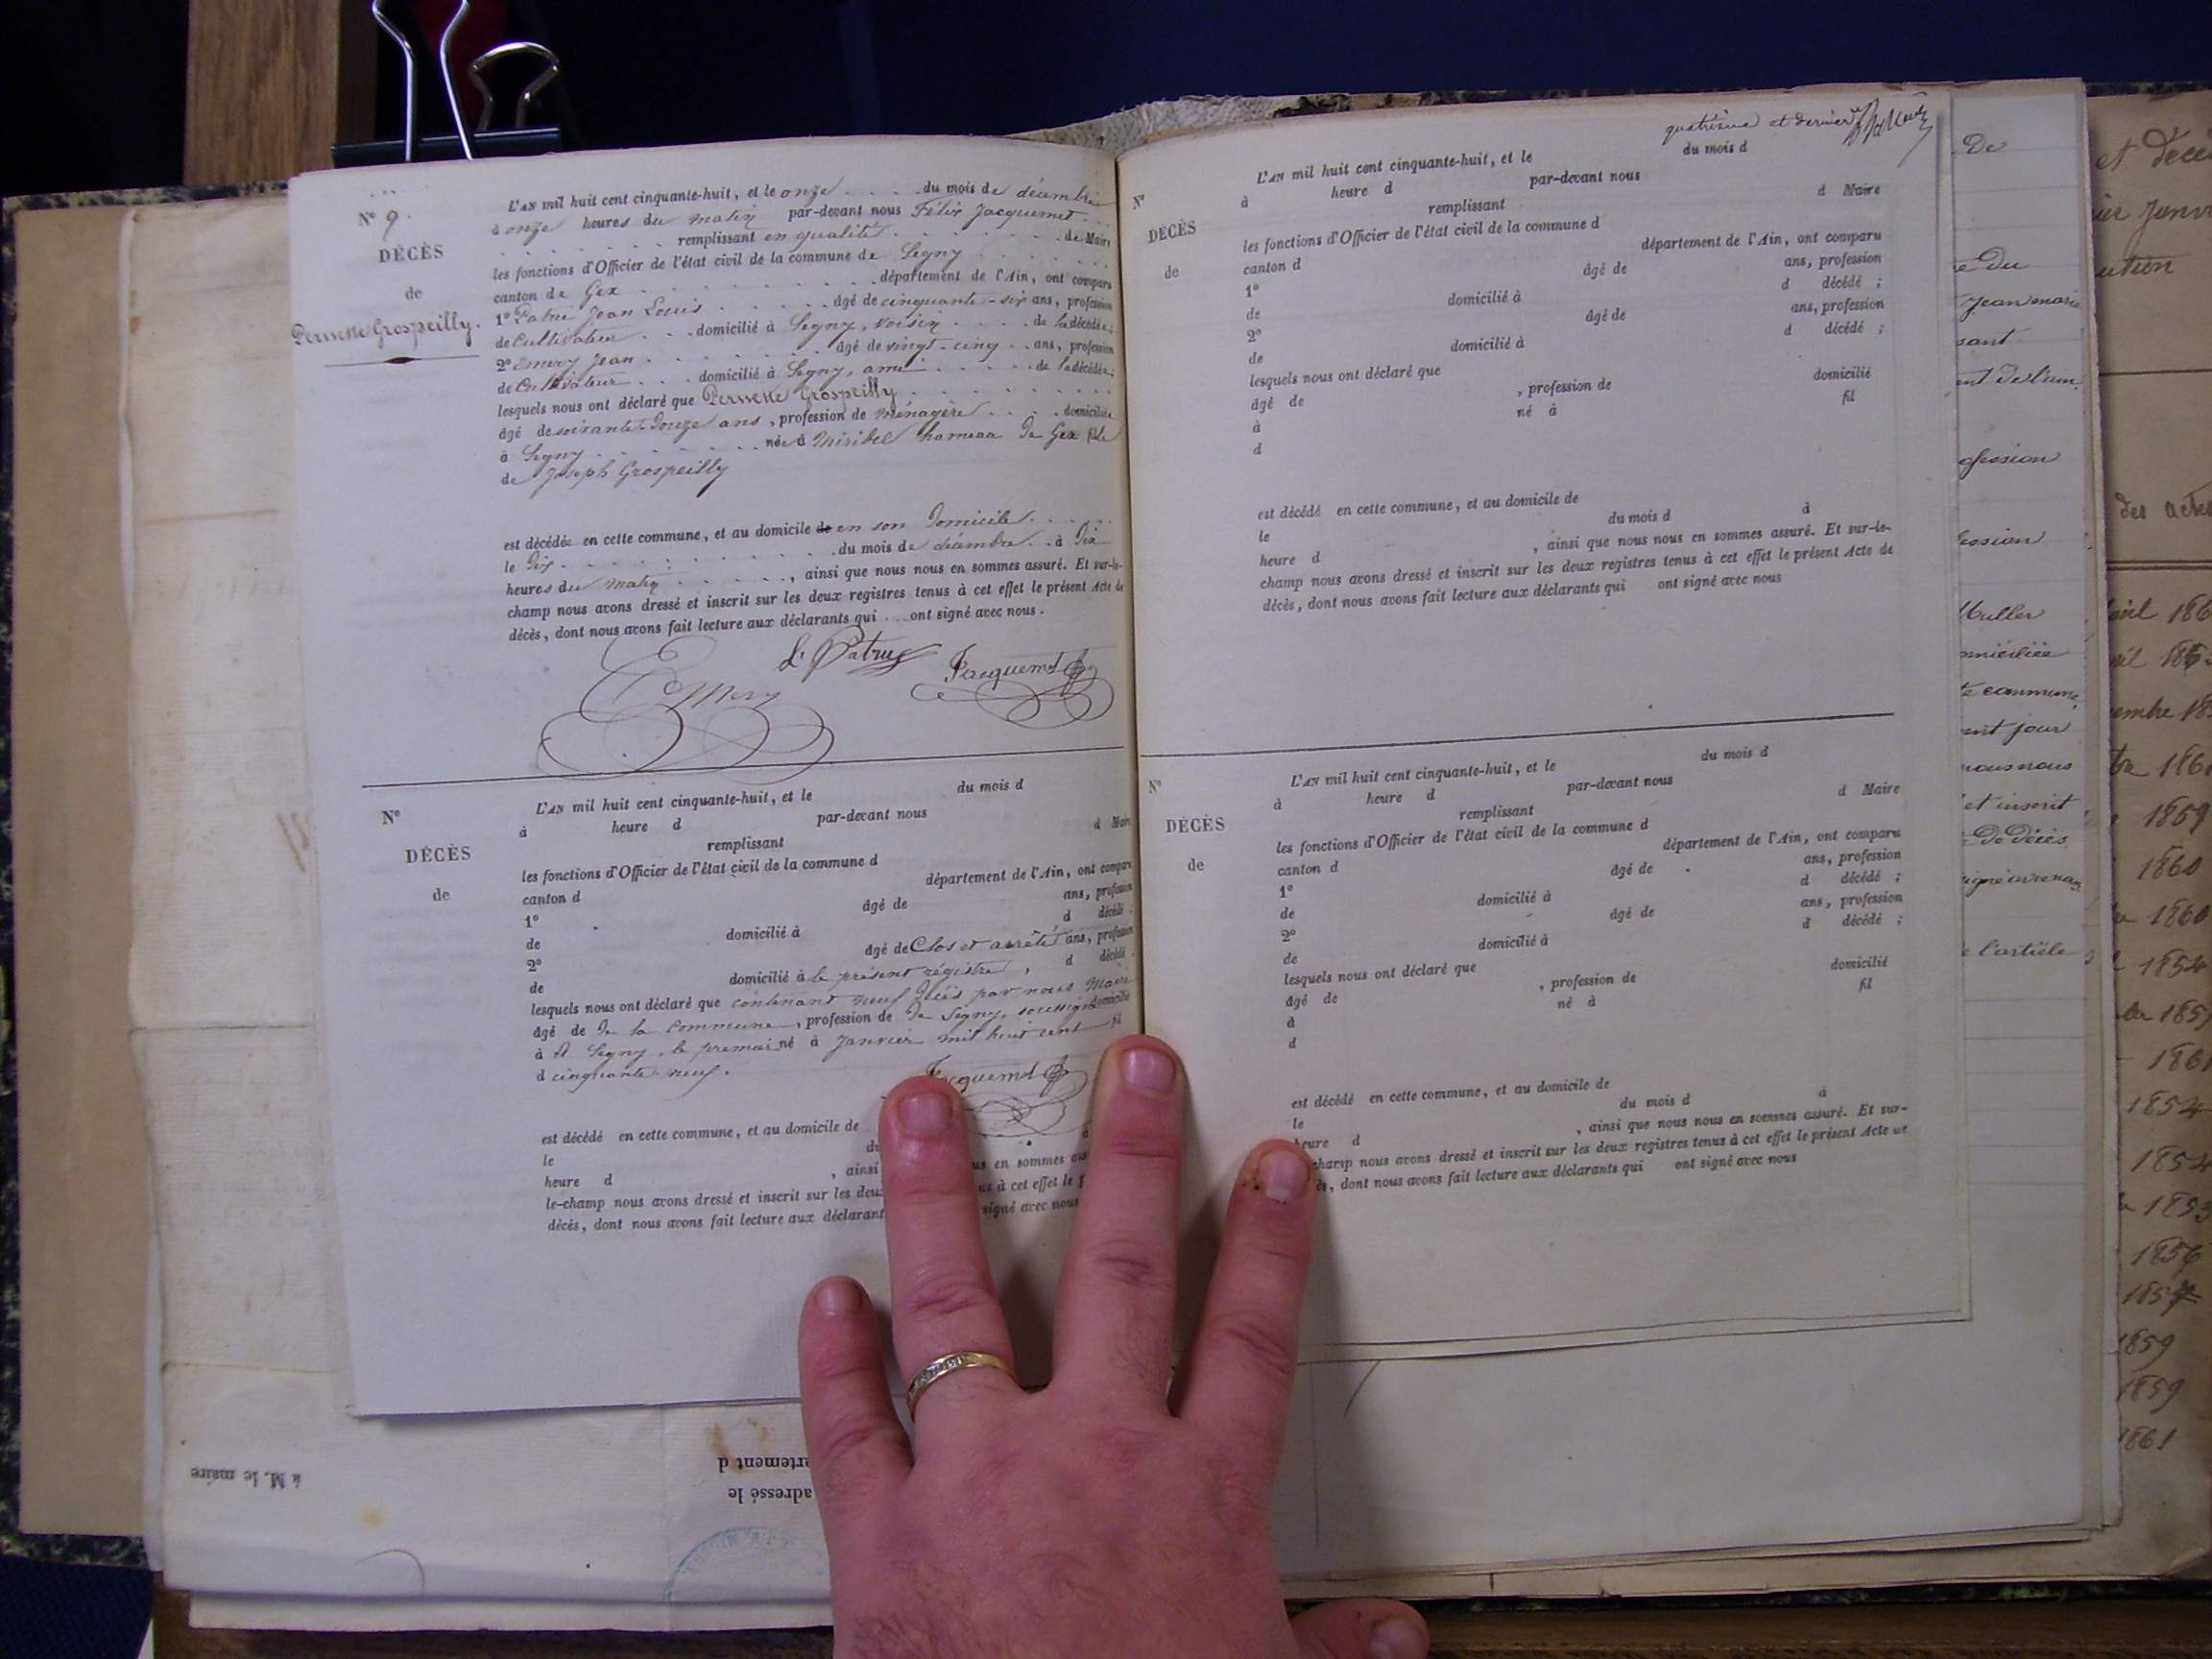 N° 9.
DÉCÈS
de
Pernette Grospeilly.
L'AN mil huit cent cinquante-huit, et le onze du mois de décembre
à onze heures du matin par-devant nous Félix Jacquemet
remplissant en qualité de Maire
les fonctions d'Officier de l'état civil de la commune de Segny
canton de Gex département de l'Ain, ont comparu
1° Patru Jean Louis âgé de cinquante-six ans, profession
de Cultivateur domicilié à Segny, voisin de la décédée;
2° Emery Jean âgé de vingt-cinq ans, profession
de Cultivateur domicilié à Segny, ami de la décédée;
lesquels nous ont déclaré que Pernette Grospeilly
âgé de soixante-douze ans, profession de ménagère domiciliée
à Segny née à Miribel hameau de Gex fille
de Joseph Grospeilly
est décédée en cette commune, et au domicile de en son domicile
le dix du mois de décembre à dix
heures du matin, ainsi que nous nous en sommes assuré. Et sur-le-
champ nous avons dressé et inscrit sur les deux registres tenus à cet effet le présent Acte de
décès, dont nous avons fait lecture aux déclarants qui ont signé avec nous.
L. Patru
Emery
Jacquemet
N°
DÉCÈS
de
L'AN mil huit cent cinquante-huit, et le du mois d
à heure d par-devant nous
remplissant d Maire
les fonctions d'Officier de l'état civil de la commune d
canton d département de l'Ain, ont comparu
1° âgé de ans, profession
de domicilié à d décédé;
2° âgé de Clos et arrêté ans, profession
de domicilié à le présent régistre, d décédé
lesquels nous ont déclaré que contenant neuf décès par nous Maire
âgé de de la Commune, profession de de Segny, soussigné domicilié
à A Segny, le premier né à Janvier mil huit cent fil
d cinquante-neuf.
Jacquemet
est décédé en cette commune, et au domicile de
le du
heure d , ainsi us en sommes ass
le-champ nous avons dressé et inscrit sur les deux us à cet effet le p
décès, dont nous avons fait lecture aux déclarant signé avec nous
quatrième et dernier
N°
DÉCÈS
de
L'AN mil huit cent cinquante-huit, et le du mois d
à heure d par-devant nous
remplissant d Maire
les fonctions d'Officier de l'état civil de la commune d
canton d département de l'Ain, ont comparu
1° âgé de ans, profession
de domicilié à d décédé;
2° âgé de ans, profession
de domicilié à d décédé;
lesquels nous ont déclaré que
âgé de , profession de domicilié
à né à fil
d
est décédé en cette commune, et au domicile de
le du mois d à
heure d , ainsi que nous nous en sommes assuré. Et sur-le-
champ nous avons dressé et inscrit sur les deux registres tenus à cet effet le présent Acte de
décès, dont nous avons fait lecture aux déclarants qui ont signé avec nous
N°
DÉCÈS
de
L'AN mil huit cent cinquante-huit, et le du mois d
à heure d par-devant nous
remplissant d Maire
les fonctions d'Officier de l'état civil de la commune d
canton d département de l'Ain, ont comparu
1° âgé de ans, profession
de domicilié à d décédé;
2° âgé de ans, profession
de domicilié à d décédé;
lesquels nous ont déclaré que
âgé de , profession de domicilié
à né à fil
d
est décédé en cette commune, et au domicile de
le du mois d à
heure d , ainsi que nous nous en sommes assuré. Et sur-
champ nous avons dressé et inscrit sur les deux registres tenus à cet effet le présent Acte de
ès, dont nous avons fait lecture aux déclarants qui ont signé avec nous
De
e du
Jean marie
sant
ent de l'ain,
ofession
ession
Muller
te commune,
ent jour
nous nous
et inscrit
de décès
e l'article
et décè
ier Janv
ution
des actes
1859
1860
1860
1854
1861
1854
1854
1853
1856
1857
1859
1859
1861
à M. le maire
rtement d
adressé le